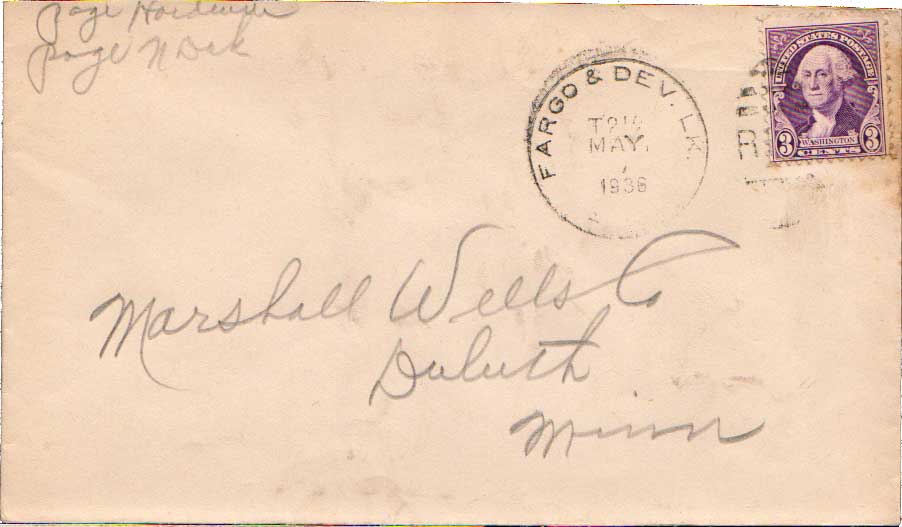 Page Hardware
Page N Dak
FARGO & DEV. LK.
MAY.
1936
UNITED STATES POSTAGE
3 WASHINGTON 3
CENTS
Marshall Wells Co
Duluth
Minn